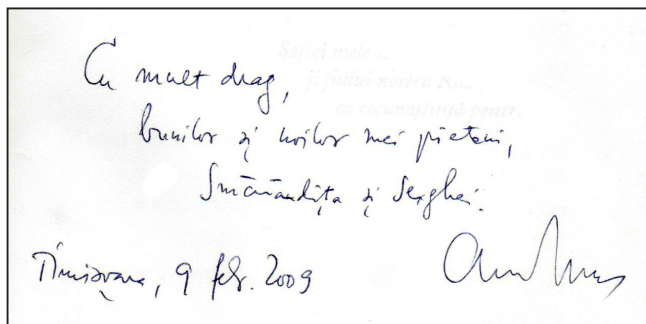 Soției mele
și fiului nostru
cu recunoștință
Cu mult drag,
bunilor și noilor mei prieteni,
Smărăndița și Serghei.
Timișoara, 9 feb. 2009